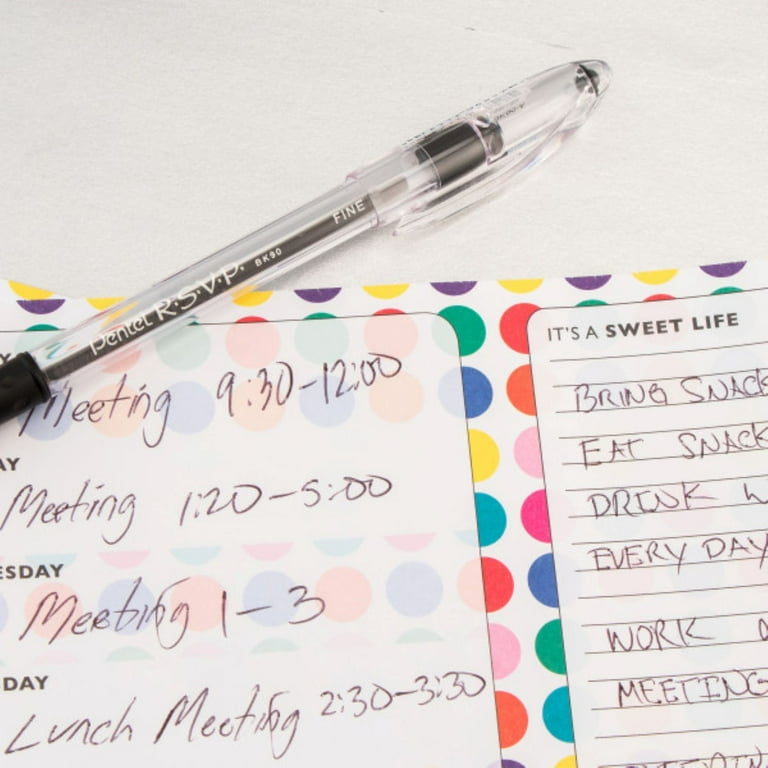 FINE
BK90
Pentel R·S·V·P.
IT'S A SWEET LIFE
Y
Meeting 9:30-12:00
AY
Meeting 1:20-5:00
ESDAY
Meeting 1-3
DAY
Lunch Meeting 2:30-3:30
BRING SNACK
EAT SNACK
DRINK W
EVERY DAY
WORK
MEETING